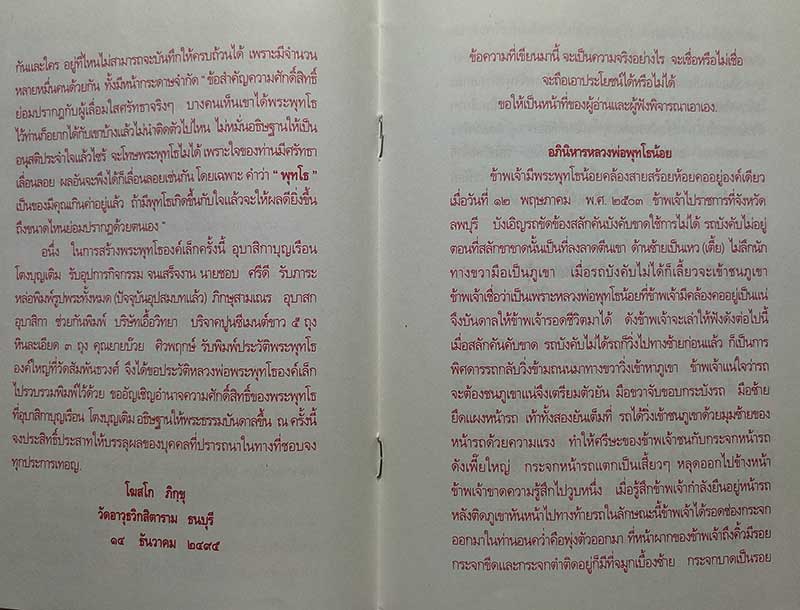 กันและใคร อยู่ที่ไหนไม่สามารถจะบันทึกให้ครบถ้วนได้ เพราะมีจำนวน
หลายหมื่นคนด้วยกัน ทั้งมีหน้ากระดาษจำกัด " ข้อสำคัญความศักดิ์สิทธิ์
ย่อมปรากฏกับผู้เลื่อมใสศรัทธาจริงๆ บางคนเห็นเขาได้พระพุทโธ
ไว้ท่านก็อยากได้กับเขาบ้างแล้วไม่นำติดตัวไปไหน ไม่หมั่นอธิษฐานให้เป็น
อนุสติประจำใจแล้วไซร้ จะโทษพระพุทโธไม่ได้ เพราะใจของท่านมีศรัทธา
เลื่อนลอย ผลอันจะพึงได้ก็เลื่อนลอยเช่นกัน โดยเฉพาะ คำว่า " พุทโธ "
เป็นของมีคุณเกินค่าอยู่แล้ว ถ้ามีพุทโธเกิดขึ้นกับใจแล้วจะให้ผลดียิ่งขึ้น
ถึงขนาดไหนย่อมปรากฏด้วยตนเอง "
อนึ่ง ในการสร้างพระพุทโธองค์เล็กครั้งนี้ อุบาสิกาบุญเรือน
โตงบุญเติม รับอุปการกิจกรรม จนเสร็จงาน นายชอบ ศรีดี รับภาระ
หล่อพิมพ์รูปพระทั้งหมด (ปัจจุบันอุปสมบทแล้ว) ภิกษุสามเณร อุบาสก
อุบาสิกา ช่วยกันพิมพ์ บริษัทเอื้อวิทยา บริจาคปูนซีเมนต์ขาว ๕ ถุง
หินละเอียด ๓ ถุง คุณยายบ๊วย ศิวพฤกษ์ รับพิมพ์ประวัติพระพุทโธ
องค์ใหญ่ที่วัดสัมพันธวงศ์ จึงได้ขอประวัติหลวงพ่อพระพุทโธองค์เล็ก
ไปรวบรวมพิมพ์ไว้ด้วย ขออัญเชิญอำนาจความศักดิ์สิทธิ์ของพระพุทโธ
ที่อุบาสิกาบุญเรือน โตงบุญเติม อธิษฐานให้พระธรรมบันดาลขึ้น ณ ครั้งนี้
จงประสิทธิ์ประสาทให้บรรลุผลของบุคคลที่ปรารถนาในทางที่ชอบจง
ทุกประการเทอญ.
โฆสโก ภิกฺขุ
วัดอาวุธวิกสิตาราม ธนบุรี
๑๔ ธันวาคม ๒๔๙๕
ข้อความที่เขียนมานี้ จะเป็นความจริงอย่างไร จะเชื่อหรือไม่เชื่อ
จะถือเอาประโยชน์ได้หรือไม่ได้
ขอให้เป็นหน้าที่ของผู้อ่านและผู้ฟังพิจารณาเอาเอง.
อภินิหารหลวงพ่อพุทโธน้อย
ข้าพเจ้ามีพระพุทโธน้อยคล้องสายสร้อยห้อยคออยู่องค์เดียว
เมื่อวันที่ ๑๒ พฤษภาคม พ.ศ. ๒๕๐๓ ข้าพเจ้าไปราชการที่จังหวัด
ลพบุรี บังเอิญรถขัดข้องสลักคันบังคับขาดใช้การไม่ได้ รถบังคับไม่อยู่
ตอนที่สลักขาขาดนั้นเป็นที่ลงลาดตีนเขา ด้านซ้ายเป็นเหว (เตี้ย) ไม่ลึกนัก
ทางขวามือเป็นภูเขา เมื่อรถบังคับไม่ได้ก็เลี้ยวจะเข้าชนภูเขา
ข้าพเจ้าเชื่อว่าเป็นเพราะหลวงพ่อพุทโธน้อยที่ข้าพเจ้ามีคล้องคออยู่เป็นแน่
จึงบันดาลให้ข้าพเจ้ารอดชีวิตมาได้ ดังข้าพเจ้าจะเล่าให้ฟังดังต่อไปนี้
เมื่อสลักคันบังคับขาด รถบังคับไม่ได้รถก็วิ่งไปทางซ้ายก่อนแล้ว ก็เป็นการ
พิศดารรถกลับวิ่งข้ามถนนมาทางขวาวิ่งเข้าหาภูเขา ข้าพเจ้าแน่ใจว่ารถ
จะต้องชนภูเขาแน่จึงเตรียมตัวยัน มือขวาจับขอบกระบังรถ มือซ้าย
ยึดแผงหน้ารถ เท้าทั้งสองยันเต็มที่ รถได้วิ่งเข้าชนภูเขาด้วยมุมซ้ายของ
หน้ารถด้วยความแรง ทำให้ศรีษะของข้าพเจ้าชนกับกระจกหน้ารถ
ดังเพี๊ยใหญ่ กระจกหน้ารถแตกเป็นเสี้ยวๆ หลุดออกไปข้างหน้า
ข้าพเจ้าขาดความรู้สึกไปวูบหนึ่ง เมื่อรู้สึกข้าพเจ้ากำลังยืนอยู่หน้ารถ
หลังติดภูเขาหันหน้าไปทางท้ายรถในลักษณะนี้ข้าพเจ้าได้รอดช่องกระจก
ออกมาในท่านอนคว่ำคือพุ่งตัวออกมา ที่หน้าผากของข้าพเจ้าถึงคิ้วมีรอย
กระจกขีดและกระจกตำติดอยู่ก็มีที่จมูกเบื้องซ้าย กระจกบาดเป็นรอย